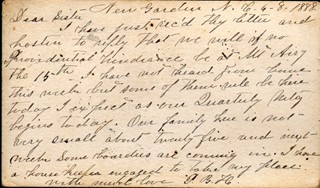 New Garden N.C. 6-8, 1888.
Dear Sister
I have just rec'd thy letter and
hasten to reply that we will if no
Providential hindrance be at Mt Airy
the 15th. I have not heard from home
this week but some of them will be here
today I expect as our Quarterly Mtg
begins today. Our family here is not
very small about twenty five and next
week some boarders are coming in. I have
a house keeper engaged to take my place
with much love